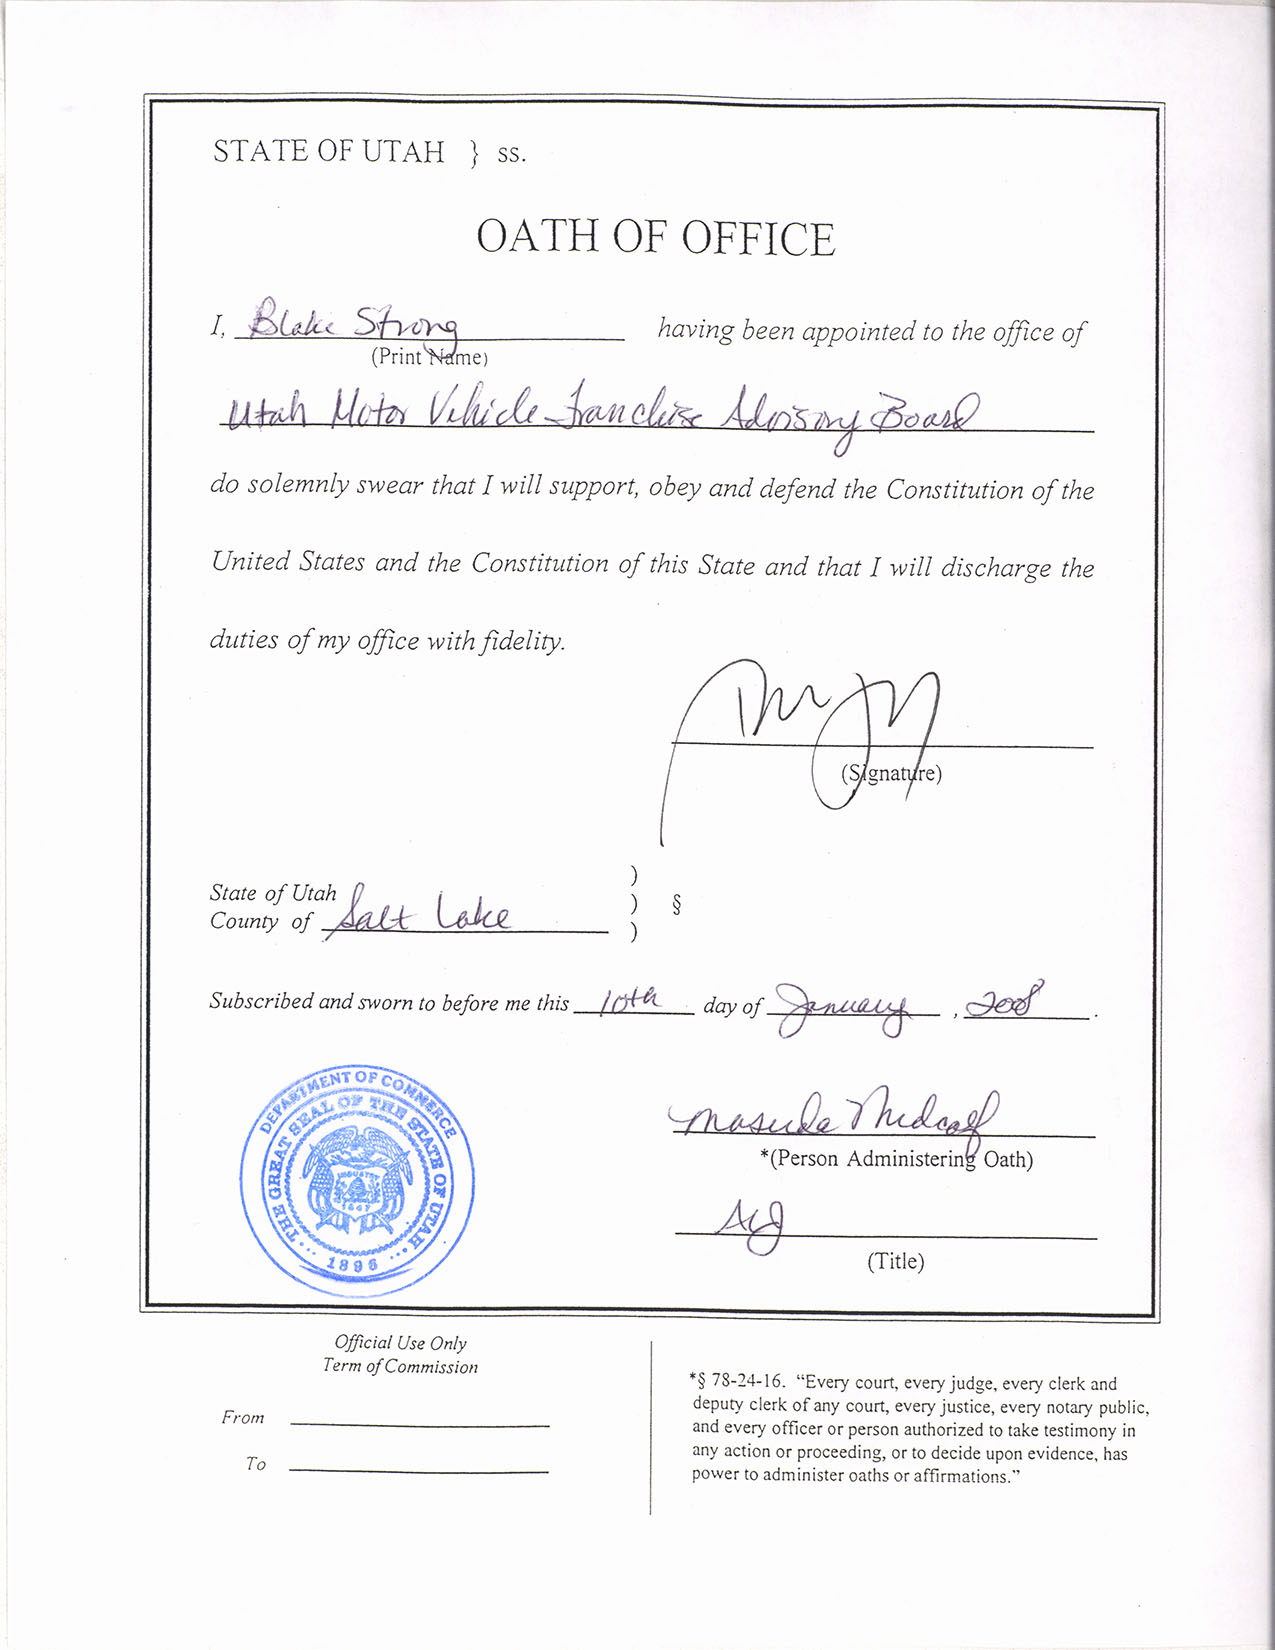 STATE OF UTAH } ss.
OATH OF OFFICE
I, Blake Strong having been appointed to the office of
(Print Name)
Utah Motor Vehicle Franchise Advisory Board
do solemnly swear that I will support, obey and defend the Constitution of the
United States and the Constitution of this State and that I will discharge the
duties of my office with fidelity.
(Signature)
State of Utah )
County of Salt Lake ) §
)
Subscribed and sworn to before me this 10th day of January, 2008.
DEPARTMENT OF COMMERCE
THE GREAT SEAL OF THE STATE OF UTAH
INDUSTRY
1847
1896
Masuda Medcalf
*(Person Administering Oath)
ALJ
(Title)
Official Use Only
Term of Commission
From
To
*§ 78-24-16. “Every court, every judge, every clerk and
deputy clerk of any court, every justice, every notary public,
and every officer or person authorized to take testimony in
any action or proceeding, or to decide upon evidence, has
power to administer oaths or affirmations.”